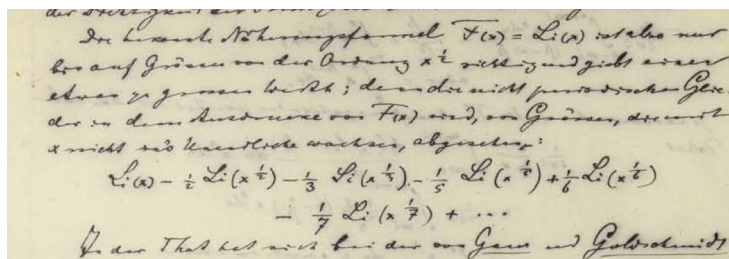 der Dichtigkeit der
Die bekannte Näherungsformel F(x) = Li(x) ist also nur
bis auf Grössen von der Ordnung x^½ richtig und giebt einen
etwas zu grossen Werth; denn die nicht periodischen Glie-
der in dem Ausdrucke von F(x) sind, von Grössen, die mit
x nicht in's Unendliche wachsen, abgesehen:
Li(x) − ½ Li(x^½) − ⅓ Li(x^⅓) − ⅕ Li(x^⅕) + ⅙ Li(x^⅙)
− 1/7 Li(x^1/7) + ...
In der That hat sich bei der von Gauss und Goldschmidt